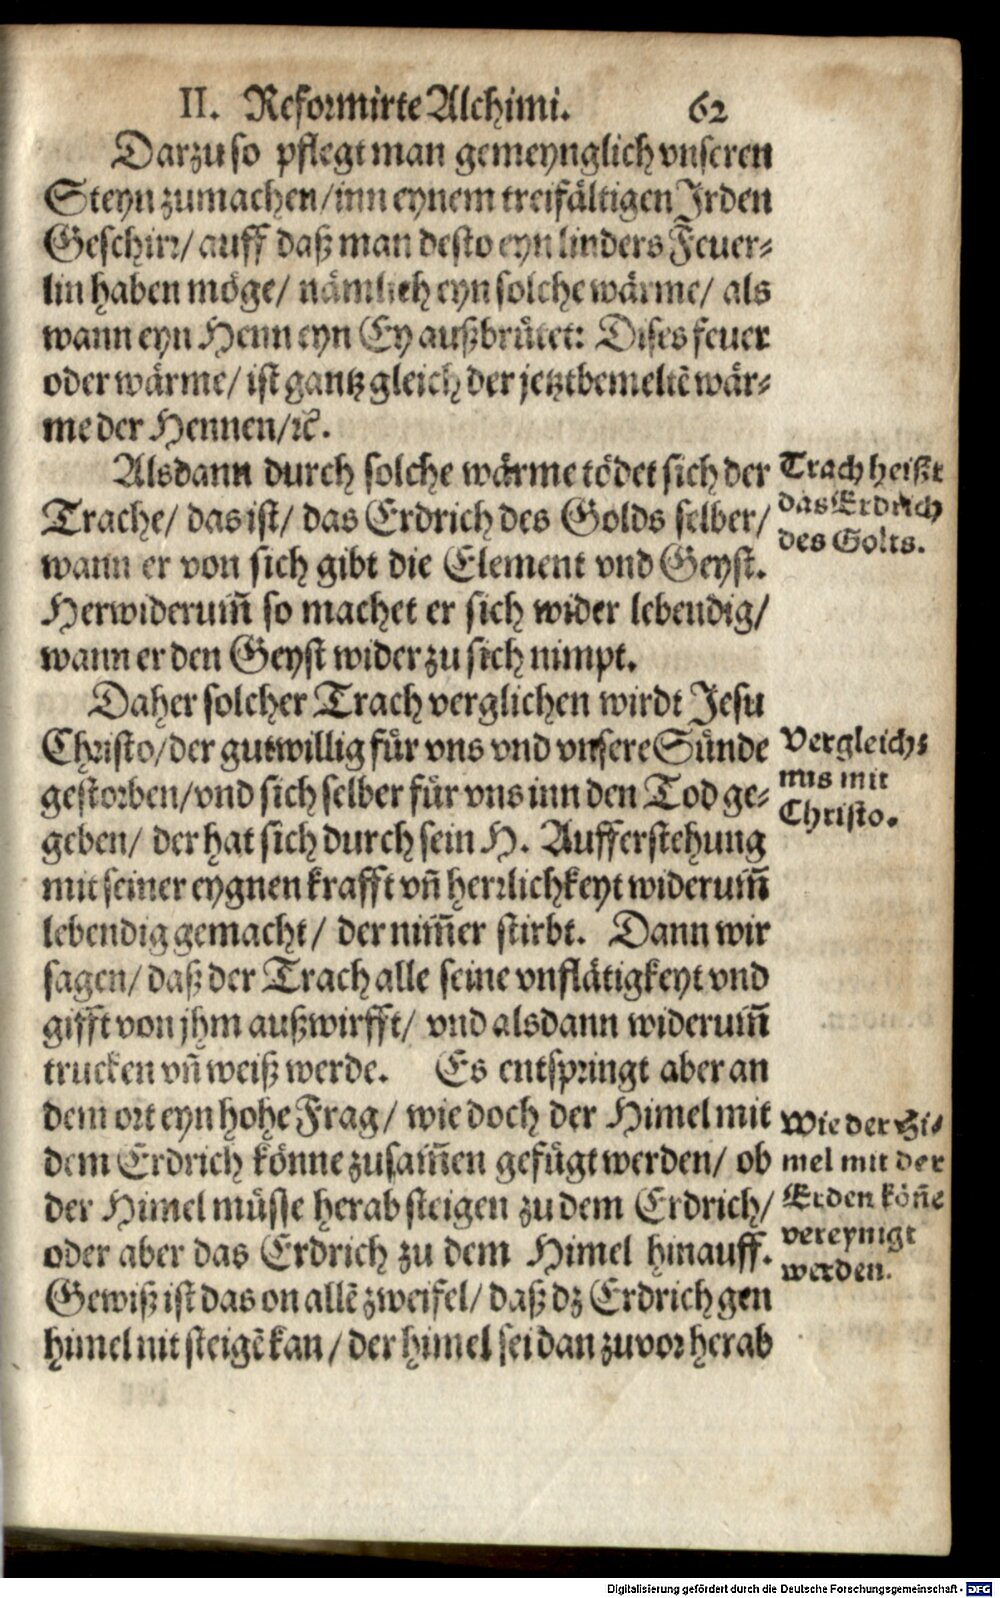 II. Reformirte Alchimi. 62
Darzu so pflegt man gemeynglich vnseren
Steyn zumachen/ inn eynem treifältigen Irden
Geschirr/ auff daß man desto eyn linders Feuer-
lin haben möge/ nämlich eyn solche wärme/ als
wann eyn Henn eyn Ey außbrütet: Dises feuer
oder wärme/ ist gantz gleich der jetztbemeltē wär-
me der Hennen/ ꝛc̃.
Alsdann durch solche wärme tödet sich der
Trache/ das ist/ das Erdrich des Golds selber/
wann er von sich gibt die Element vnd Geyst.
Herwiderum̃ so machet er sich wider lebendig/
wann er den Geyst wider zu sich nimpt.
Trach heißt
das Erdrich
des Golts.
Daher solcher Trach verglichen wirdt Jesu
Christo/ der gutwillig für vns vnd vnsere Sünde
gestorben/ vnd sich selber für vns inn den Tod ge-
geben/ der hat sich durch sein H. Aufferstehung
mit seiner eygnen krafft vñ herrlichkeyt widerum̃
lebendig gemacht/ der nim̃er stirbt. Dann wir
sagen/ daß der Trach alle seine vnflätigkeyt vnd
gifft von jhm außwirfft/ vnd alsdann widerum̃
trucken vñ weiß werde. Es entspringt aber an
dem ort eyn hohe Frag/ wie doch der Himel mit
dem Erdrich könne zusam̃en gefügt werden/ ob
der Himel müsse herab steigen zu dem Erdrich/
oder aber das Erdrich zu dem Himel hinauff.
Gewiß ist das on allē zweifel/ daß dz Erdrich gen
himel nit steigē kan/ der himel sei dan zuvor herab
Vergleich-
nus mit
Christo.
Wie der Hi-
mel mit der
Erden kön̄e
vereynigt
werden.
Digitalisierung gefördert durch die Deutsche Forschungsgemeinschaft - DFG